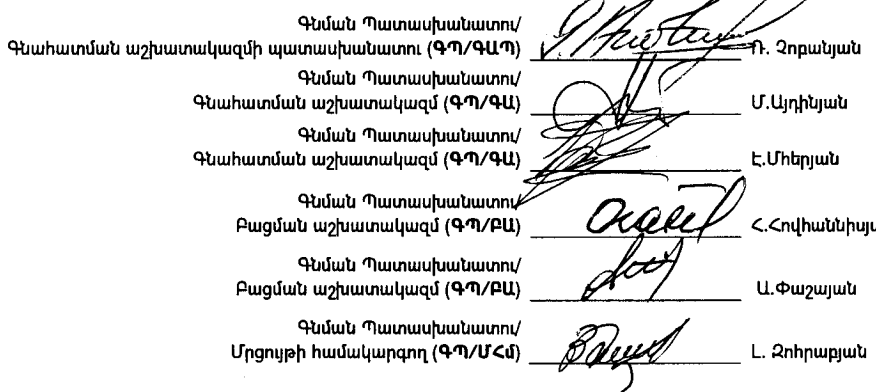 Գնման Պատասխանատու/
Գնահատման աշխատակազմի պատասխանատու (ԳՊ/ԳԱՊ) Ռ. Չոբանյան
Գնման Պատասխանատու/
Գնահատման աշխատակազմ (ԳՊ/ԳԱ) Մ.Այդինյան
Գնման Պատասխանատու/
Գնահատման աշխատակազմ (ԳՊ/ԳԱ) Է.Մհերյան
Գնման Պատասխանատու/
Բացման աշխատակազմ (ԳՊ/ԲԱ) Հ.Հովհաննիսյա
Գնման Պատասխանատու/
Բացման աշխատակազմ (ԳՊ/ԲԱ) Ա.Փաշայան
Գնման Պատասխանատու/
Մրցույթի համակարգող (ԳՊ/ՄՀմ) Լ. Զոհրաբյան